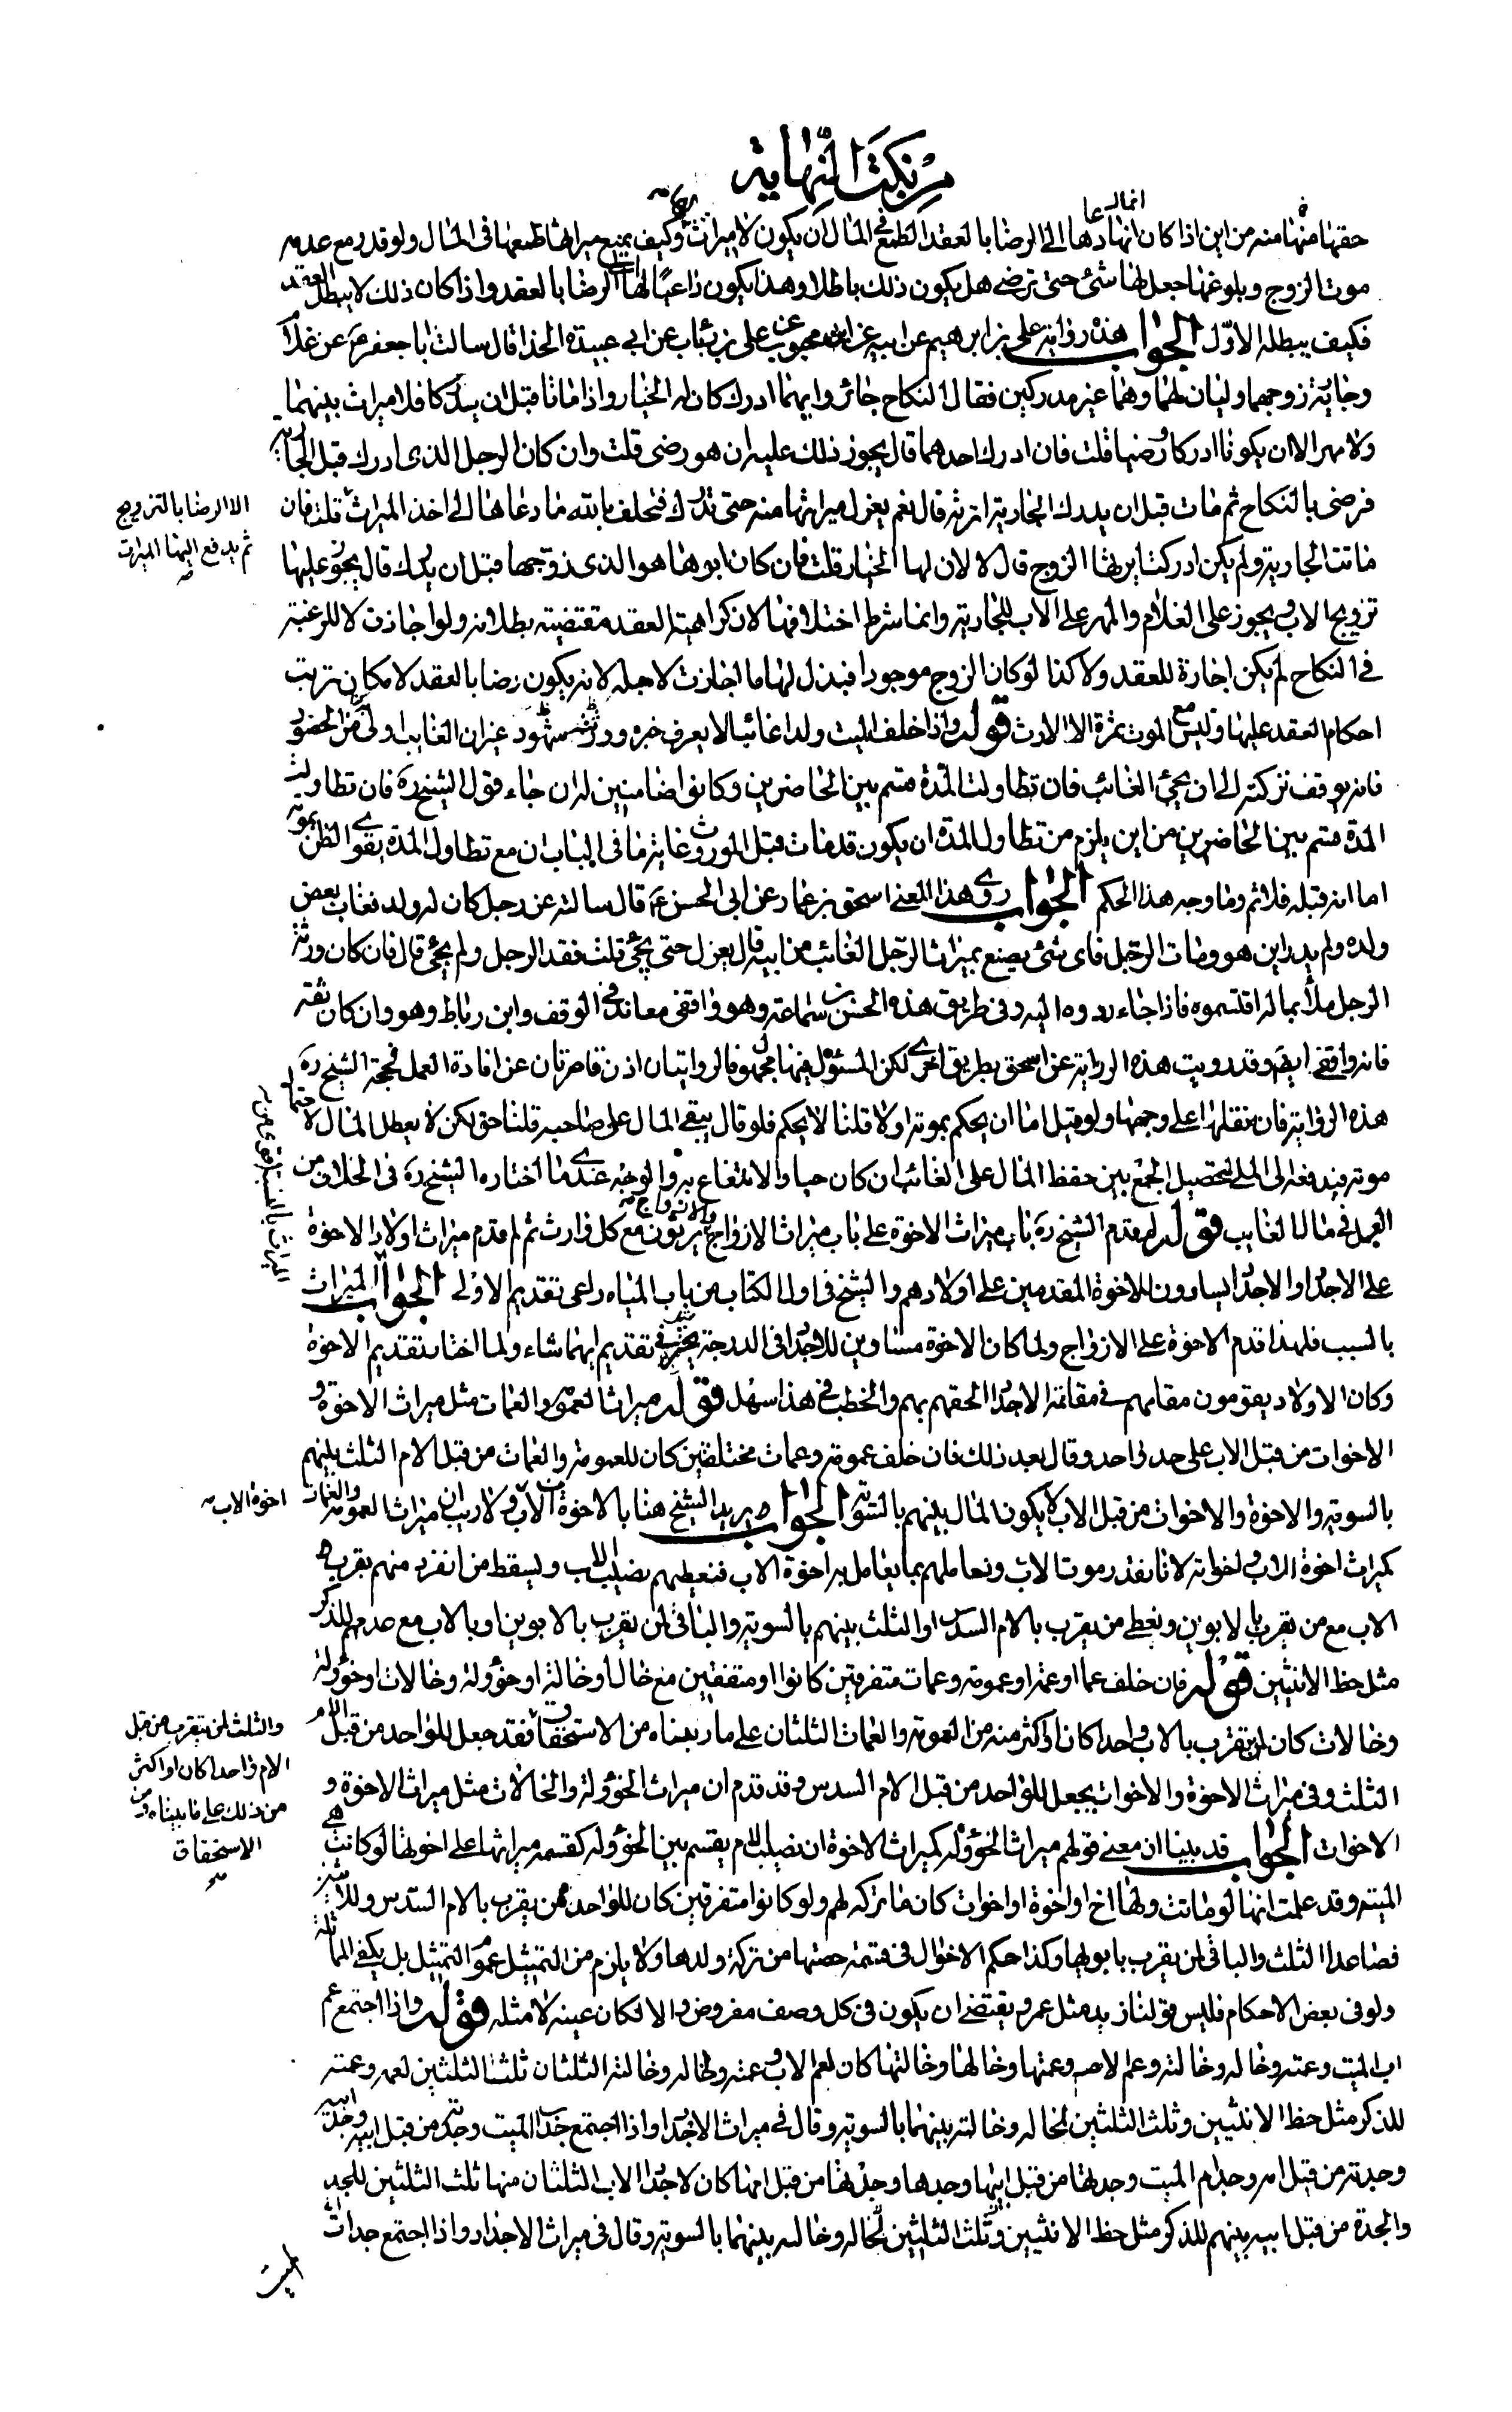 من نكت النهاية
حقها منها منه من اين اذا كان انما دعاها الى الرضا بالعقد الطمع في المال ان يكون لا ميراث وكيف يمنع ميراثها طمعها في المال ولو قدر مع عدم
موت الزوج وبلوغها جعل لها شئ حتى ترضى هل يكون ذلك باطلا وهذا يكون داعيا لها الى الرضا بالعقد واذا كان ذلك لا يبطل العقد
فكيف يبطله الاول الجواب هذه رواية علي بن ابرهيم عن ابيه عن ابن محبوب عن علي بن رئاب عن ابي عبيدة الحذا قال سالت ابا جعفر ع عن غلام
وجارية زوجهما وليان لهما وهما غير مدركين فقال النكاح جائز وايهما ادرك كان له الخيار واذا ماتا قبل ان يدركا فلا ميراث بينهما
ولا مهر الا ان يكونا ادركا ورضيا قلت فان ادرك احدهما قال يجوز ذلك عليه ان هو رضى قلت وان كان الرجل الذى ادرك قبل الجارية
فرضى بالنكاح ثم مات قبل ان يدرك الجارية اترثه قال نعم يعزل ميراثها منه حتى تدرك فتحلف بالله ما دعاها الى اخذ الميراث قلت فان
الا الرضا بالتزويج
ثم يدفع اليها الميراث
ماتت الجارية ولم يكن ادركت ايرثها الزوج قال لا لان لها الخيار قلت فان كان ابوها هو الذى زوجها قبل ان يدرك قال يجوز عليها
تزويج الاب ويجوز على الغلام والمهر على الاب للجارية وانما شرط احلافها لان كراهية العقد مقتضية بطلانه ولو اجازت لا للرغبة
في النكاح لم يكن اجازة للعقد ولا كذا لو كان الزوج موجودا فبذل لها ما اجازت لاجله لانه يكون رضا بالعقد لامكان ترتب
احكام العقد عليها وليس مع الموت ثمرة الا الارث قوله واذا خلف الميت ولدا غائبا لا يعرف خبره وورثة شهود غير ان الغايب اولى من الحضور
فانه يوقف تركته الى ان يجئ الغائب فان تطاولت المدة قسم بين الحاضرين وكانوا ضامنين له ان جاء قول الشيخ ره فان تطاولت
المدة قسم بين الحاضرين من اين يلزم من تطاول المدة ان يكون قد مات قبل الموروث وغاية ما في الباب ان مع تطاول المدة يقوى الظن بموته
اما انه قبله فلا ثم وما وجه هذا الحكم الجواب روى هذا المعنى اسحق بن عمار عن ابى الحسن ع قال سالته عن رجل كان له ولد فغاب بعض
ولده ولم يدر اين هو ومات الرجل فاى شئ يصنع بميراث الرجل الغائب من ابيه قال يعزل حتى يجئ قلت فقد الرجل ولم يجئ قال فان كان ورثة
الرجل ملاء بماله اقتسموه فاذا جاء ردوه اليه وفى طريق هذه الحسن بن سماعة وهو واقفى معاند في الوقف وابن رباط وهو وان كان ثقة
فانه واقفى ايض وقد رويت هذه الرواية عن اسحق بطريق اخرى لكن المسئول فيها مجهول فالروايتان اذن قاصرتان عن افادة العمل فحجة الشيخ ره
هذه الرواية فان نقلها على وجهها ولو قيل اما ان يحكم بموته اولا قلنا لا يحكم فلو قال يبقى المال على صاحبه قلنا حق لكن لا يعطل المال لاحتمال
موته فيدفعه الى الملي لتحصيل الجمع بين حفظ المال على الغائب ان كان حيا والانتفاع به والوجه عندى ما اختاره الشيخ ره في الخلاف من
العمل في مال الغايب قوله لم قدم الشيخ ره باب ميراث الاخوة على باب ميراث الازواج والازواج يرثون مع كل وارث ثم لم قدم ميراث اولاد الاخوة
على الاجداد والاجداد يساوون للاخوة المقدمين على اولادهم والشيخ في اول الكتاب من باب المياه راعى تقديم الاولى الجواب الميراث
الميراث بالنسب اقوى من
بالسبب فلهذا قدم الاخوة على الازواج ولما كان الاخوة مساوين للاجداد في الدرجة يتخير في تقديم ايهما شاء ولما اختار تقديم الاخوة
وكان الاولاد يقومون مقامهم في مقاسمة الاجداد الحقهم بهم والخطب في هذا سهل قوله ميراث العمومة والعمات مثل ميراث الاخوة و
الاخوات من قبل الاب على حد واحد وقال بعد ذلك فان خلف عمومة وعمات مختلفين كان للعمومة والعمات من قبل الام الثلث بينهم
بالسوية والاخوة والاخوات من قبل الاب لا يكون المال بينهم بالسوية الجواب يريد الشيخ هنا بالاخوة من الاب ولا ريب ان ميراث العمومة والعمات
اخوة الاب
كميراث اخوة الاب واخواته لانا نقدر موت الاب ونعاملهم بما يعامل به اخوة الاب فنعطيهم نصيب الاب ويسقط من انفرد منهم بقرب
الاب مع من يقرب بالابوين ونعطى من يقرب بالام السدس او الثلث بينهم بالسوية والباقى لمن يقرب بالابوين او بالاب مع عدمهم للذكر
مثل حظ الانثيين قوله فان خلف عما او عمة او عمومة وعمات متفرقين كانوا او متفقين مع خال او خالة او خؤولة وخالات او خؤولة
وخالات كان لمن يقرب بالاب واحدا كان او اكثر منه من العمومة والعمات الثلثان على ما رتبناه من الاستحقاق فقد جعل للواحد من قبل الام
والثلث لمن يتقرب من قبل
الام واحدا كان او اكثر
من ذلك على ما بيناه من
الاستحقاق
الثلث وفى ميراث الاخوة والاخوات يجعل للواحد من قبل الام السدس وقد قدم ان ميراث الخؤولة والخالات مثل ميراث الاخوة و
الاخوات الجواب قد بينا ان معنى قولهم ميراث الخؤولة كميراث الاخوة ان نصيب الام يقسم بين الخؤولة كقسمة ميراثها على اخوتها لو كانت هى
الميتة وقد علمت انها لو ماتت ولها اخ او اخوة او اخوات كان ما تركه لهم ولو كانوا متفرقين كان للواحد ممن يقرب بالام السدس وللاثنين
فصاعدا الثلث والباقى لمن يقرب بابويها وكذا حكم الاخوال في قسمة حصتها من تركة ولدها ولا يلزم من التمثيل عموم التمثيل بل يكفى المماثلة
ولو في بعض الاحكام فليس قولنا زيد مثل عمرو يقتضى ان يكون في كل وصف مفروض والا لكان عينه لا مثله قوله واذا اجتمع عم
اب الميت وعمته وخاله وخالته وعم الام وعمتها وخالها وخالتها كان لعم الاب وعمته ولخاله وخالته الثلثان ثلثا الثلثين لعمه وعمته
للذكر مثل حظ الانثيين وثلث الثلثين لخاله وخالته بينهما بالسوية وقال في ميراث الاجداد واذا اجتمع جد اب الميت وجدته من قبل ابيه وجده
وجدته من قبل امه وجد ام الميت وجدتها من قبل ابيها وجدها وجدتها من قبل امها كان لاجداد الاب الثلثان منها ثلث الثلثين للجد
والجدة من قبل ابيه بينهم للذكر مثل حظ الانثيين وثلث الثلثين لخاله وخالته بينهما بالسوية وقال في ميراث الاجداد واذا اجتمع جدات
الميت